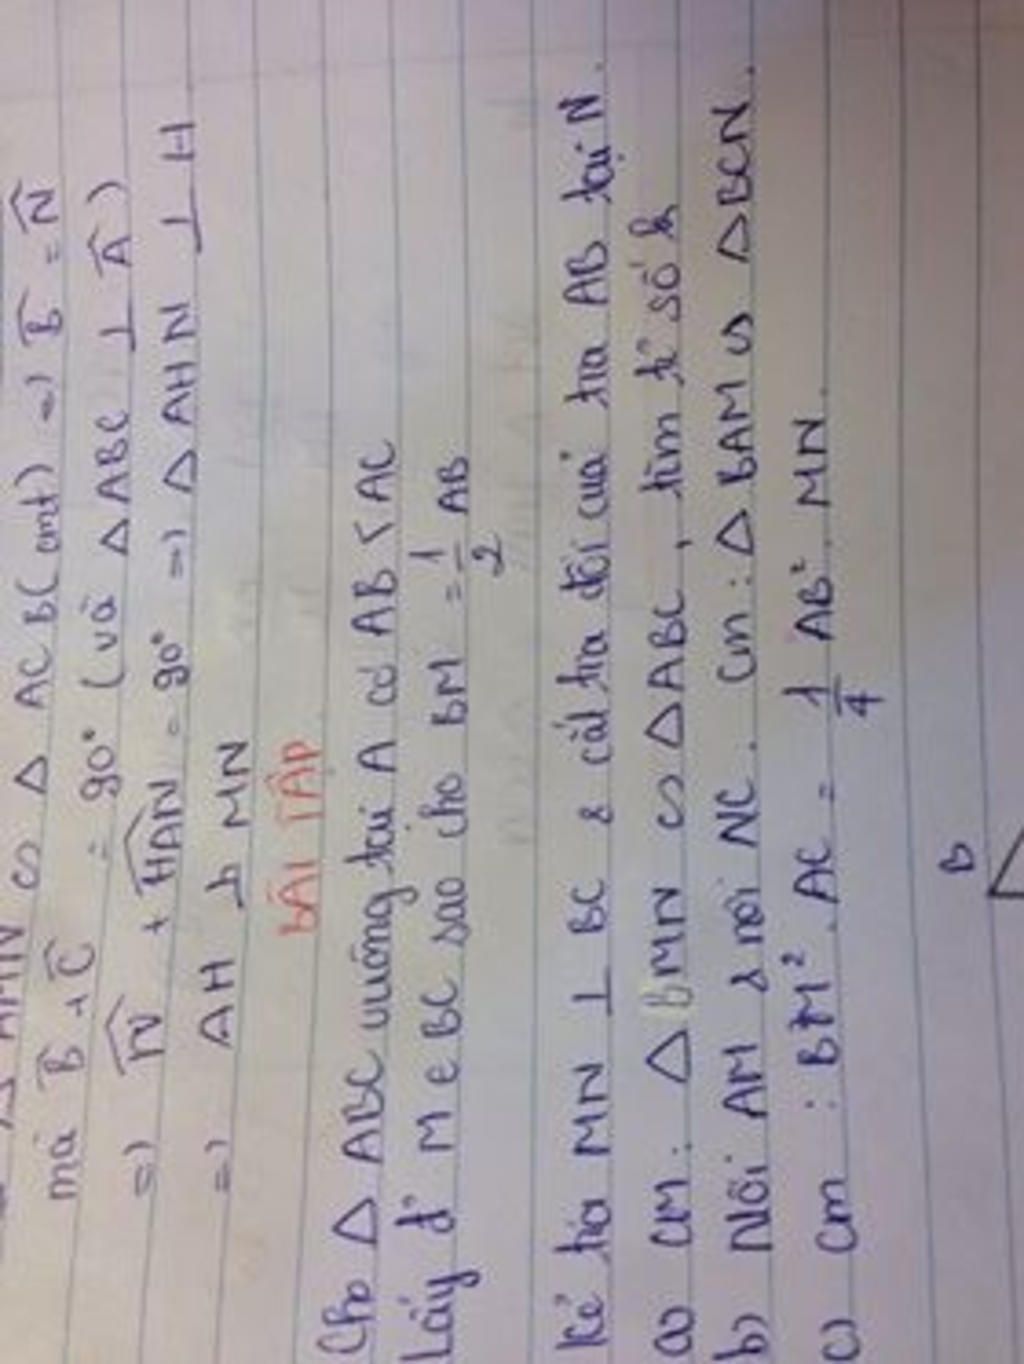 ∆ AMN ∽ ∆ ACB (cmt) => B̂ = N̂
mà B̂ + Ĉ = 90° (vì ∆ ABC ⊥ Â)
=> N̂ + HAN = 90° => ∆ AHN ⊥ H
=> AH ⊥ MN
BÀI TẬP
Cho ∆ ABC vuông tại A có AB < AC
Lấy đ' M ∈ BC sao cho BM = 1/2 AB
Kẻ tia MN ⊥ BC & cắt tia đối của tia AB tại N.
a) CM: ∆ BMN ∽ ∆ ABC, tìm tỉ số k
b) Nối AM & nối NC. Cm: ∆ BAM ∽ ∆ BCN.
c) Cm : BM². AC = 1/4 AB². MN.
B